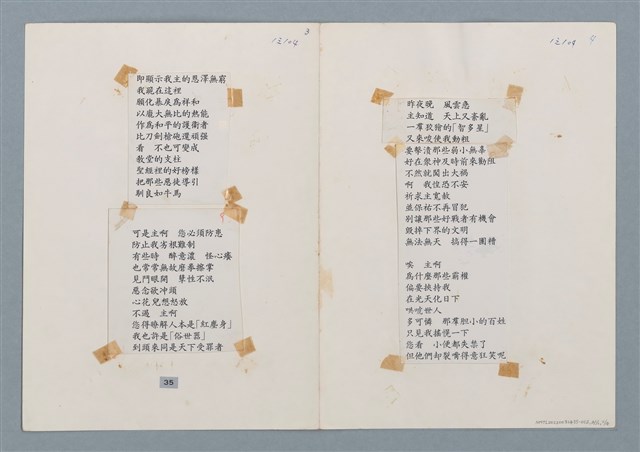 3
即顯示我主的恩澤無窮
我跪在這裡
願化暴戾為祥和
以龐大無比的熱能
作為和平的護衛者
比刀劍槍砲還頑強
看　不也可變成
教堂的支柱
聖經裡的好榜樣
把那些惡徒導引
馴良如牛馬
可是主啊　您必須防患
防止我劣根難制
有些時　醉意濃　怪心癢
也常常無故磨拳擦掌
見鬥眼開　孽性不泯
惡念欲冲頭
心花兒想怒放
不過　主啊
您得瞭解人本是「紅塵身」
我也許是「俗世器」
到頭來同是天下受罪者
35
昨夜晚　風雲急
主知道　天上又紊亂
一羣狡獪的「智多星」
又來唆使我動粗
要擊潰那些弱小無辜
好在眾神及時前來勸阻
不然就闖出大禍
啊　我惶恐不安
祈求主寬赦
並保祐不再冒犯
別讓那些好戰者有機會
毀掉下界的文明
無法無天　搞得一團糟
唉　主啊
為什麼那些霸權
偏要挾持我
在光天化日下
哄唬世人
多可憐　那羣胆小的百姓
只見我搖慌一下
您看　小便都失禁了
但他們却裂嘴得意狂笑呢